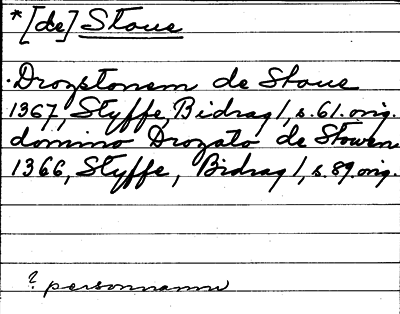 *[de] Stoue
·Drozstonem de Stoue
1367, Styffe, Bidrag 1, s. 61. orig.
domino Drozato de Stowen
1366, Styffe, Bidrag 1, s. 89. orig.
? personnamn